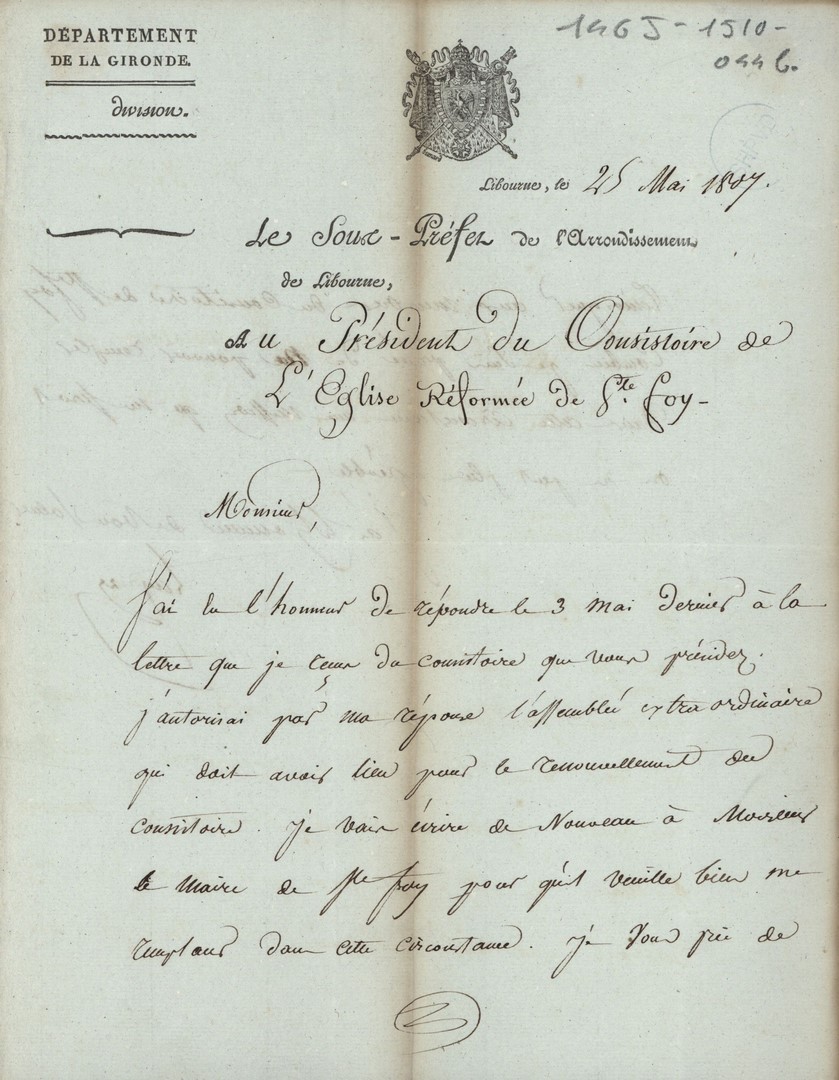 DÉPARTEMENT
DE LA GIRONDE.
division.
146J-1510-
044 6.
Libourne, le 25 Mai 1807.
Le Sous-Préfet de l'Arrondissement
de Libourne,
Au Président du Consistoire de
L'Eglise Réformée de Ste. Foy-
Monsieur,
J'ai eu l'honneur de répondre le 3 mai dernier à la
lettre que je reçus du consistoire que vous présidez.
j'autorisai par ma réponse l'assemblée extraordinaire
qui doit avoir lieu pour le renouvellement du
consistoire. je vais écrire de Nouveau à Monsieur
le Maire de Ste foy pour qu'il veuille bien me
remplacer dans cette circonstance. Je Vous prie de